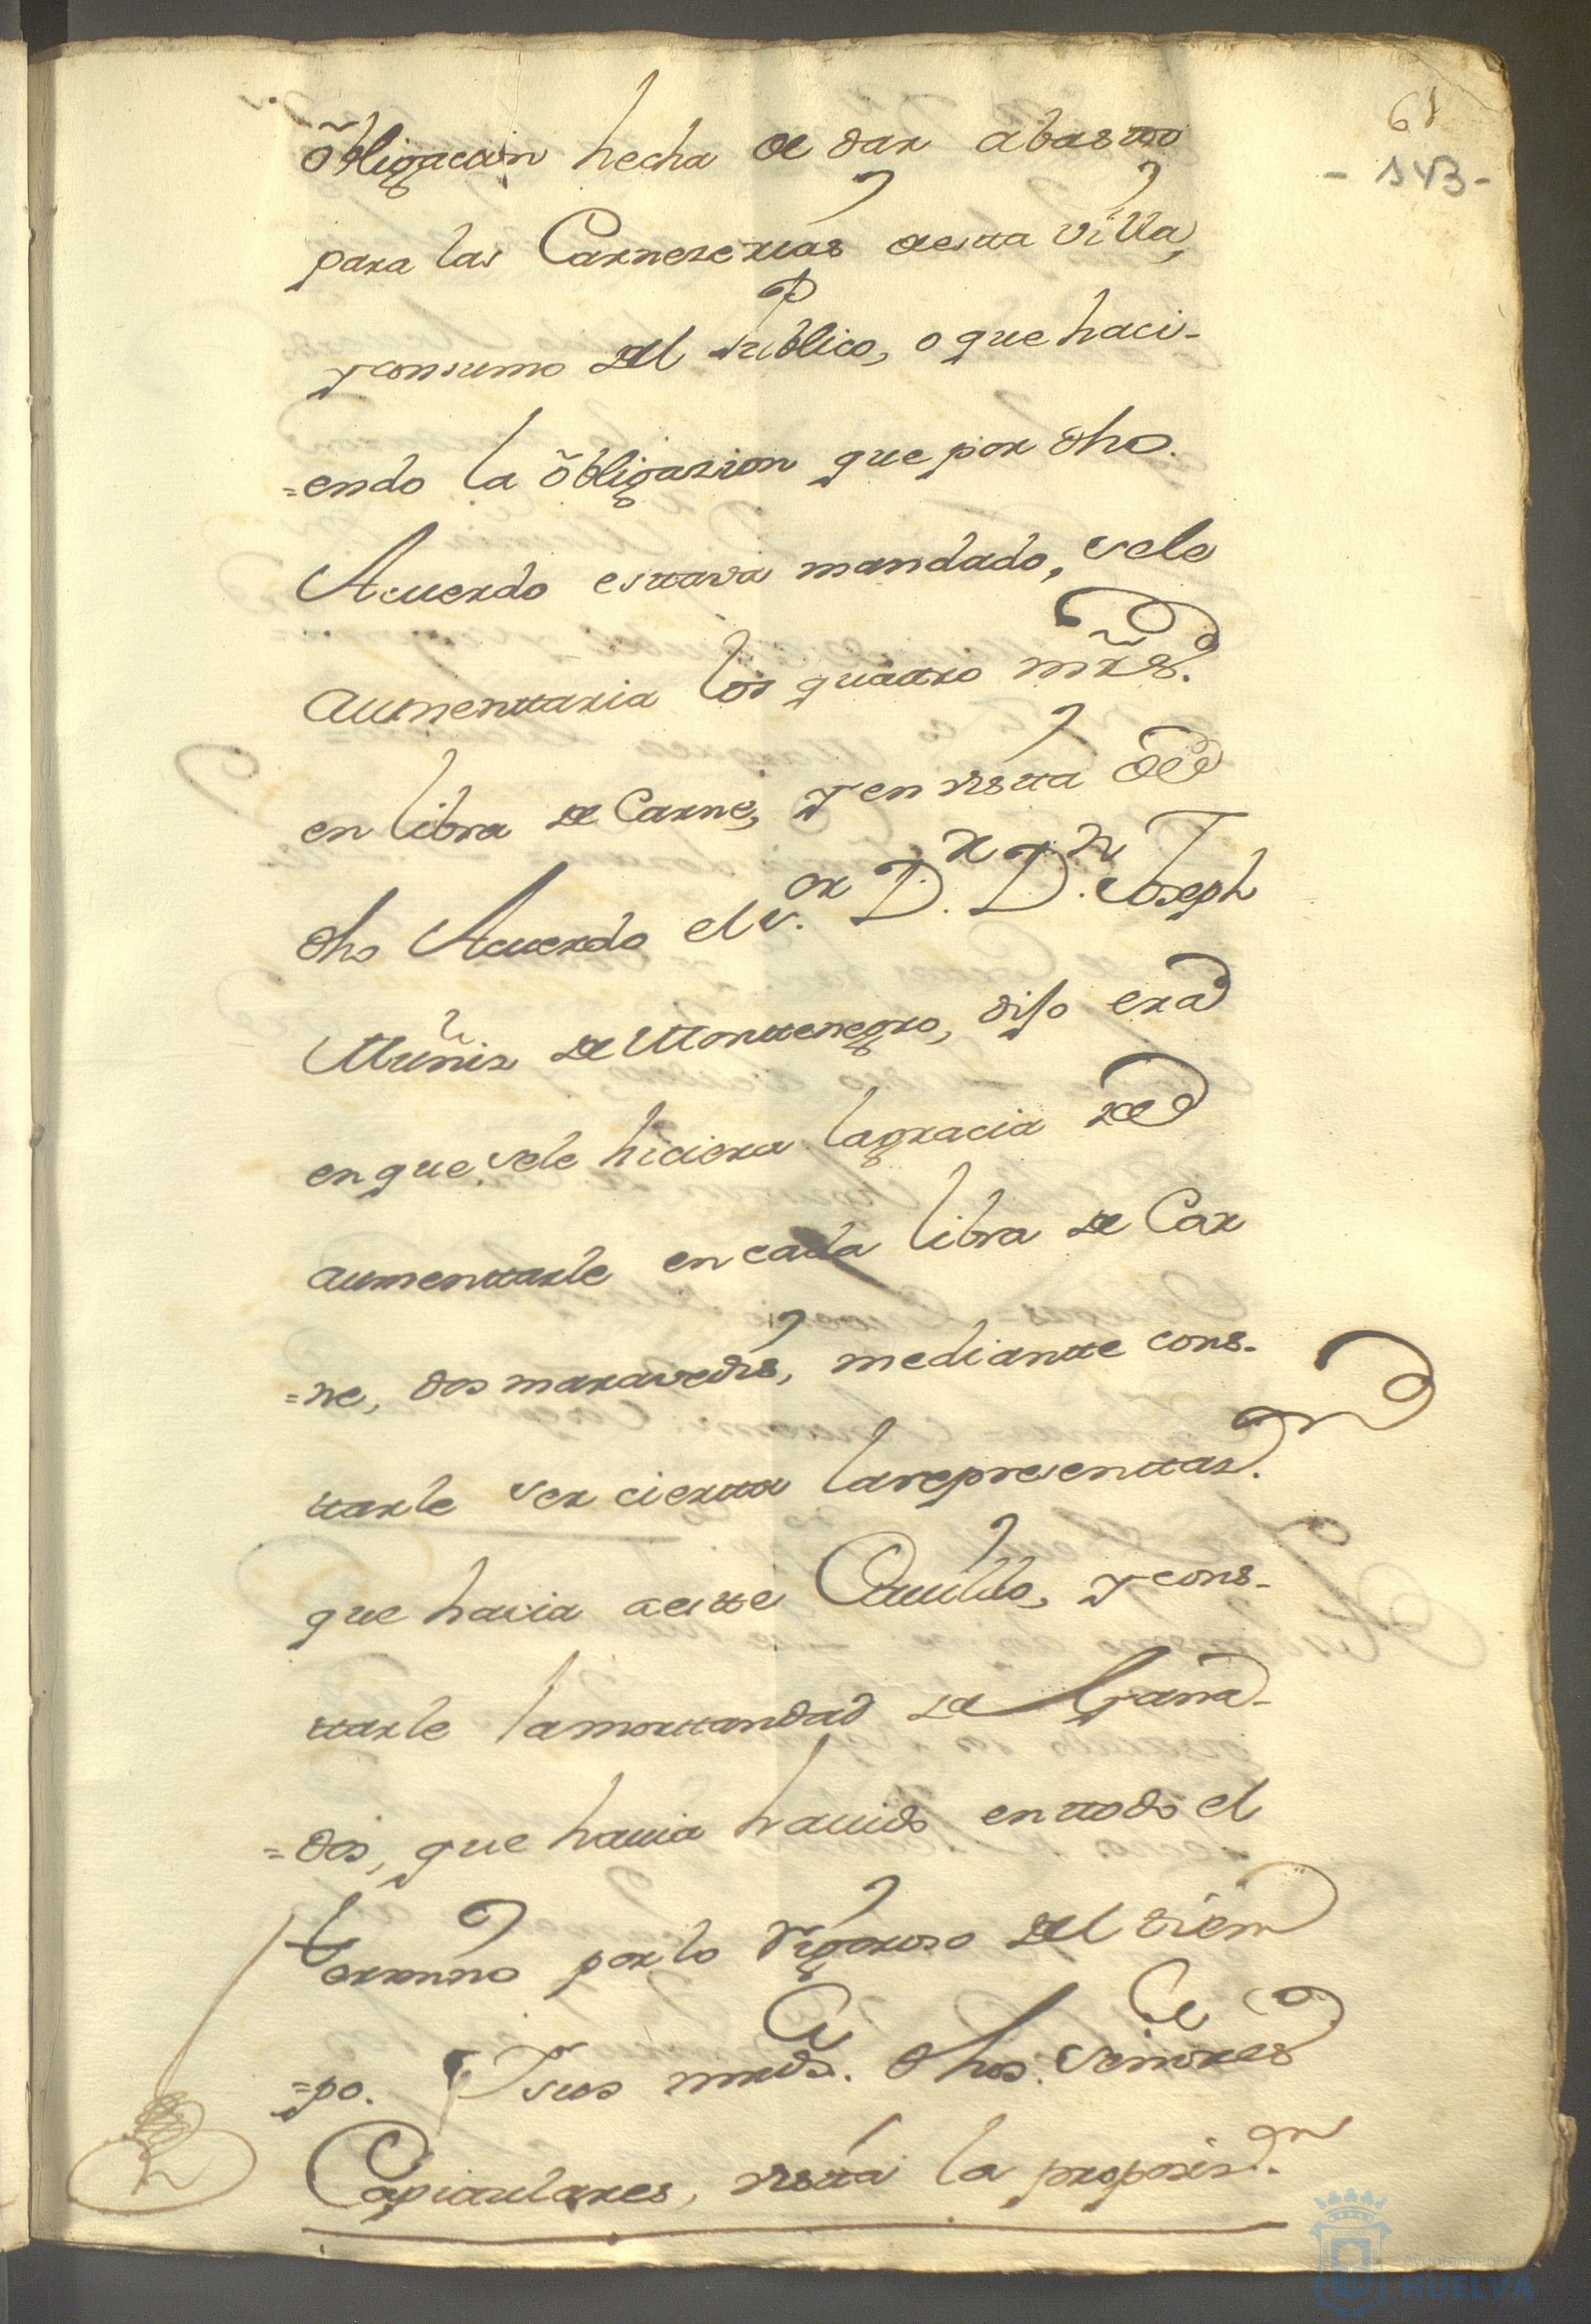 61
- 143 -
õbligacion hecha de dar abastto
para las Carnezerias destta Villa,
y consumo del Publico, o que haci-
=endo la õbligazion que por dho.
Acuerdo esttava mandado, sele
aumenttaria los quattro mr̃s.
en libra de Carne, y en vistta de
dho Acuerdo el s.or D.n D.n Joseph
Muñiz de Monttenegro, dijo era
en que sele hiciera la gracia de
aumenttarle en cada libra de Car
=ne, dos maravedis, mediantte cons-
ttarle ser ciertta la representtaz.n
que hacia a estte Cavildo, y cons-
ttarle la morttandad de Gana-
=dos, que havia havido en ttodo el
termino por lo Rigoroso del tiem
=po. Y sus mrds. dhos. Señores
Capitulares, vistta la proposiz.n
Ayuntamiento
HUELVA